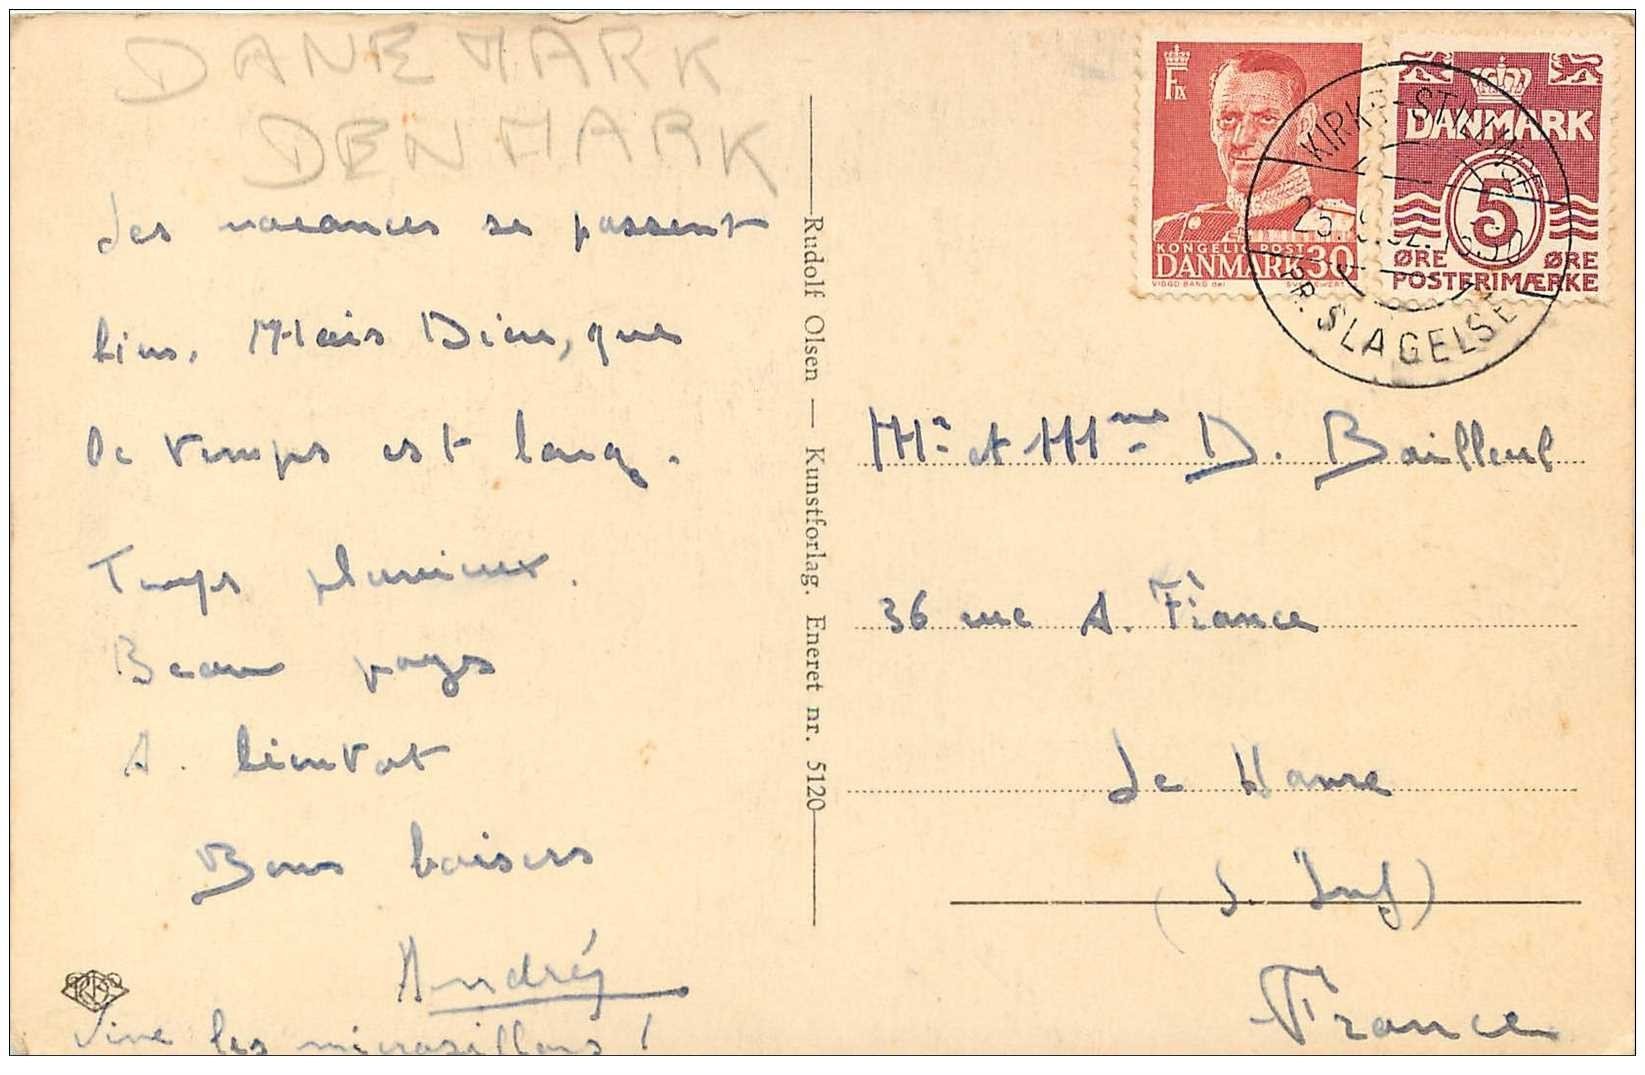 DANEMARK
DENMARK
Les vacances se passent
bien. Mais Dieu, que
le temps est long.
Temps pluvieux.
Beau pays
A. bientôt
Bons baisers
André
Vive les microsillons !
Rudolf Olsen — Kunstforlag. Eneret nr. 5120
F IX
KONGELIG POST
DANMARK 30
VIGGO BANG del
DANMARK
5
ØRE ØRE
POSTFRIMÆRKE
KIRKE-STILLINGE
PR. SLAGELSE
Mr et Mme D. Bailleul
36 rue A. France
Le Havre
(S. Inf)
France